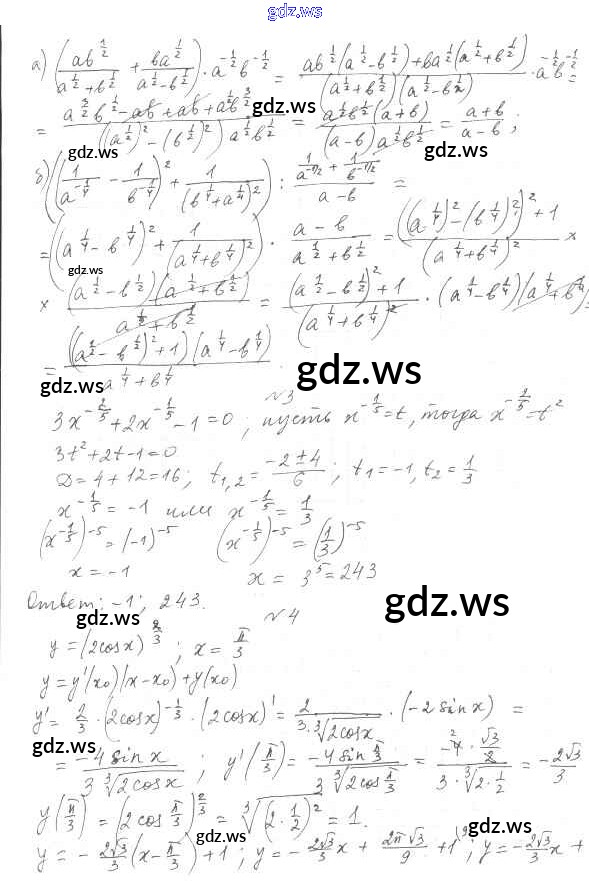 gdz.ws
а) (ab^{1/2}/(a^{1/2}+b^{1/2}) + ba^{1/2}/(a^{1/2}-b^{1/2})) · a^{-1/2}b^{-1/2} = (ab^{1/2}(a^{1/2}-b^{1/2})+ba^{1/2}(a^{1/2}+b^{1/2}))/((a^{1/2}+b^{1/2})(a^{1/2}-b^{1/2})) · a^{-1/2}b^{-1/2} =
= (a^{3/2}b^{1/2}-ab+ab+a^{1/2}b^{3/2})/(((a^{1/2})^2-(b^{1/2})^2) a^{1/2}b^{1/2}) = a^{1/2}b^{1/2}(a+b)/((a-b)a^{1/2}b^{1/2}) = (a+b)/(a-b);
gdz.ws
gdz.ws
б) ((1/a^{-1/4} - 1/b^{-1/4})^2 + 1/(b^{1/4}+a^{1/4})^2) : (1/a^{-1/2} + 1/b^{-1/2})/(a-b) =
= ((a^{1/4}-b^{1/4})^2 + 1/(a^{1/4}+b^{1/4})^2) · (a-b)/(a^{1/2}+b^{1/2}) = (((a^{1/4})^2-(b^{1/4})^2)^2+1)/(a^{1/4}+b^{1/4})^2 ×
gdz.ws
× (a^{1/2}-b^{1/2})(a^{1/2}+b^{1/2})/(a^{1/2}+b^{1/2}) = ((a^{1/2}-b^{1/2})^2+1)/(a^{1/4}+b^{1/4})^2 · (a^{1/4}-b^{1/4})(a^{1/4}+b^{1/4}) =
= ((a^{1/2}-b^{1/2})^2+1)(a^{1/4}-b^{1/4})/(a^{1/4}+b^{1/4})
gdz.ws
№3
3x^{-2/5}+2x^{-1/5}-1=0; пусть x^{-1/5}=t, тогда x^{-2/5}=t^2
3t^2+2t-1=0
D=4+12=16; t_{1,2}=(-2±4)/6; t_1=-1, t_2=1/3
x^{-1/5}=-1 или x^{-1/5}=1/3
(x^{-1/5})^{-5}=(-1)^{-5} (x^{-1/5})^{-5}=(1/3)^{-5}
x=-1 x=3^5=243
Ответ: -1; 243.
gdz.ws
gdz.ws
№4
y=(2cosx)^{2/3}; x=π/3
y=y'(x_0)(x-x_0)+y(x_0)
y'=2/3·(2cosx)^{-1/3}·(2cosx)'=2/(3·∛(2cosx))·(-2sinx) =
gdz.ws
gdz.ws
= -4sinx/(3∛(2cosx)); y'(π/3)= -4sin π/3/(3∛(2cos π/3)) = (-4·√3/2)/(3·∛(2·1/2)) = -2√3/3
y(π/3)=(2cos π/3)^{2/3}=∛((2·1/2)^2)=1.
gdz.ws
gdz.ws
y=-2√3/3(x-π/3)+1; y=-2√3/3 x+2π√3/9+1; y=-2√3/3 x+